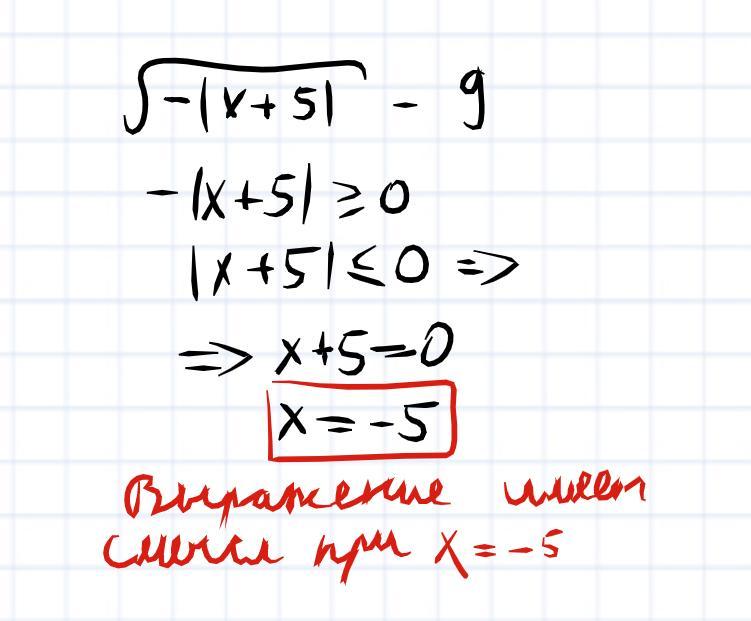 √-|x+5| - 9
-|x+5| ≥ 0
|x+5| ≤ 0 =>
=> x+5=0
x = -5
Выражение имеет
смысл при x = -5